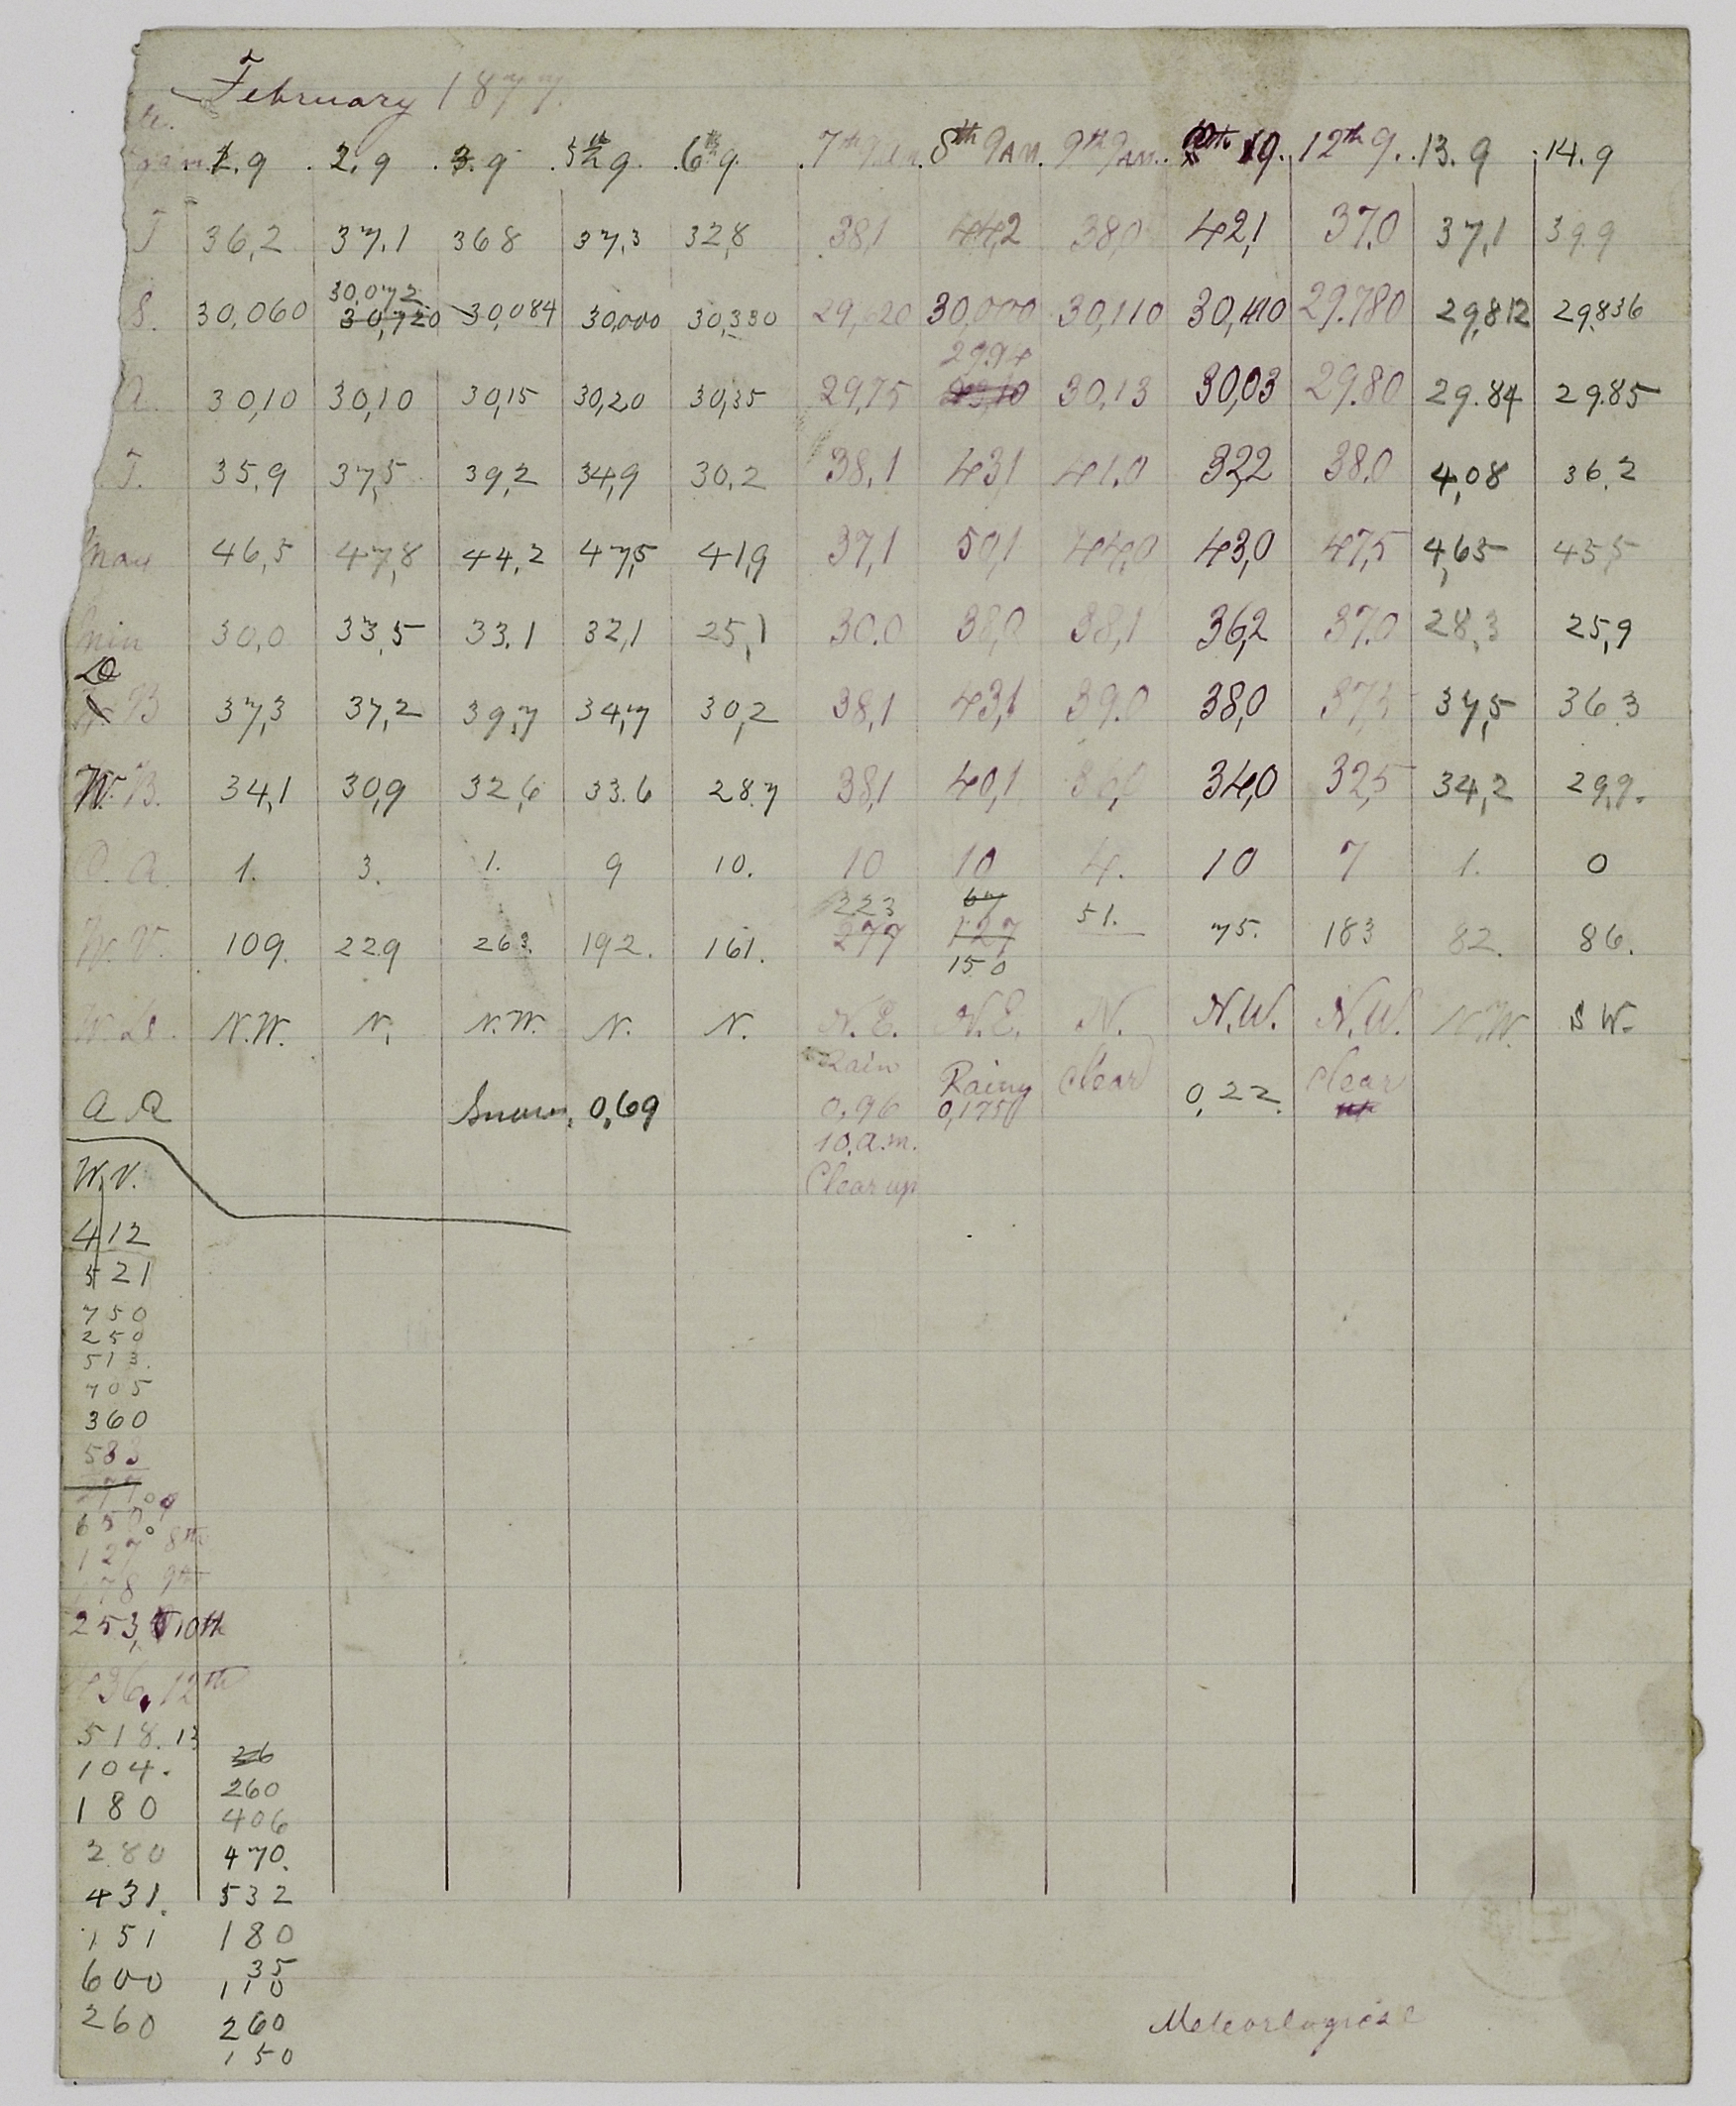 February 1877.
1. 9 . 2. 9 . 3. 9 . 5th 9. 6th 9. 7th 9 a.m. 8th 9 AM. 9th 9 AM. 10th 9. 12th 9. 13. 9 14. 9
T 36,2 37,1 36 8 37,3 32,8 38,1 44,2 38,0 42,1 37,0 37,1 39.9
30,072
S. 30,060 30,720 30,084 30,000 30,330 30,000 30,110 30,110 29.780 29,812 29,836
29.94
A. 30,10 30,10 30,15 30,20 30,35 29,75 30,13 30,03 29.80 29.84 29.85
T. 35,9 37,5 39,2 34,9 30,2 38,1 43,1 41.0 32,2 38.0 4,08 36.2
Max 46,5 47,8 44,2 47,5 41,9 37,1 50,1 44,0 43,0 47,5 4,65 45,5
Min 30,0 33,5 33.1 32,1 25,1 30.0 38,0 38,1 36,2 37.0 28,3 25,9
D
B 37,3 37,2 39,7 34,7 30,2 38,1 43,1 39.0 38,0 37,5 36.3
W. B. 34,1 30,9 32,6 33.6 28.7 38,1 40,1 36,0 34,0 32,5 34,2 29,9.
C. A. 1. 3. 1. 9 10. 10 10 4. 10 7 1. 0
223 67
W. V. 109. 229 263. 192. 161. 277 127 51. 75. 183 82. 86.
150
W. N.W. N. N.W. N. N. N.E. N.E. N. N.W. N.W. N.W. S W.
Rain
A R Snow, 0,69 0.96 Rainy 0,1750 Clear 0,22. Clear
10, a.m.
Clear up
W. V.
412
521
750
250
513.
705
360
583
277
650
127 8th
178 9th
253, 10th
336. 12th
518. 13 26
104. 260
180 406
280 470.
431. 532
151 180
35
600 110
260 260
150
Meteorlogical